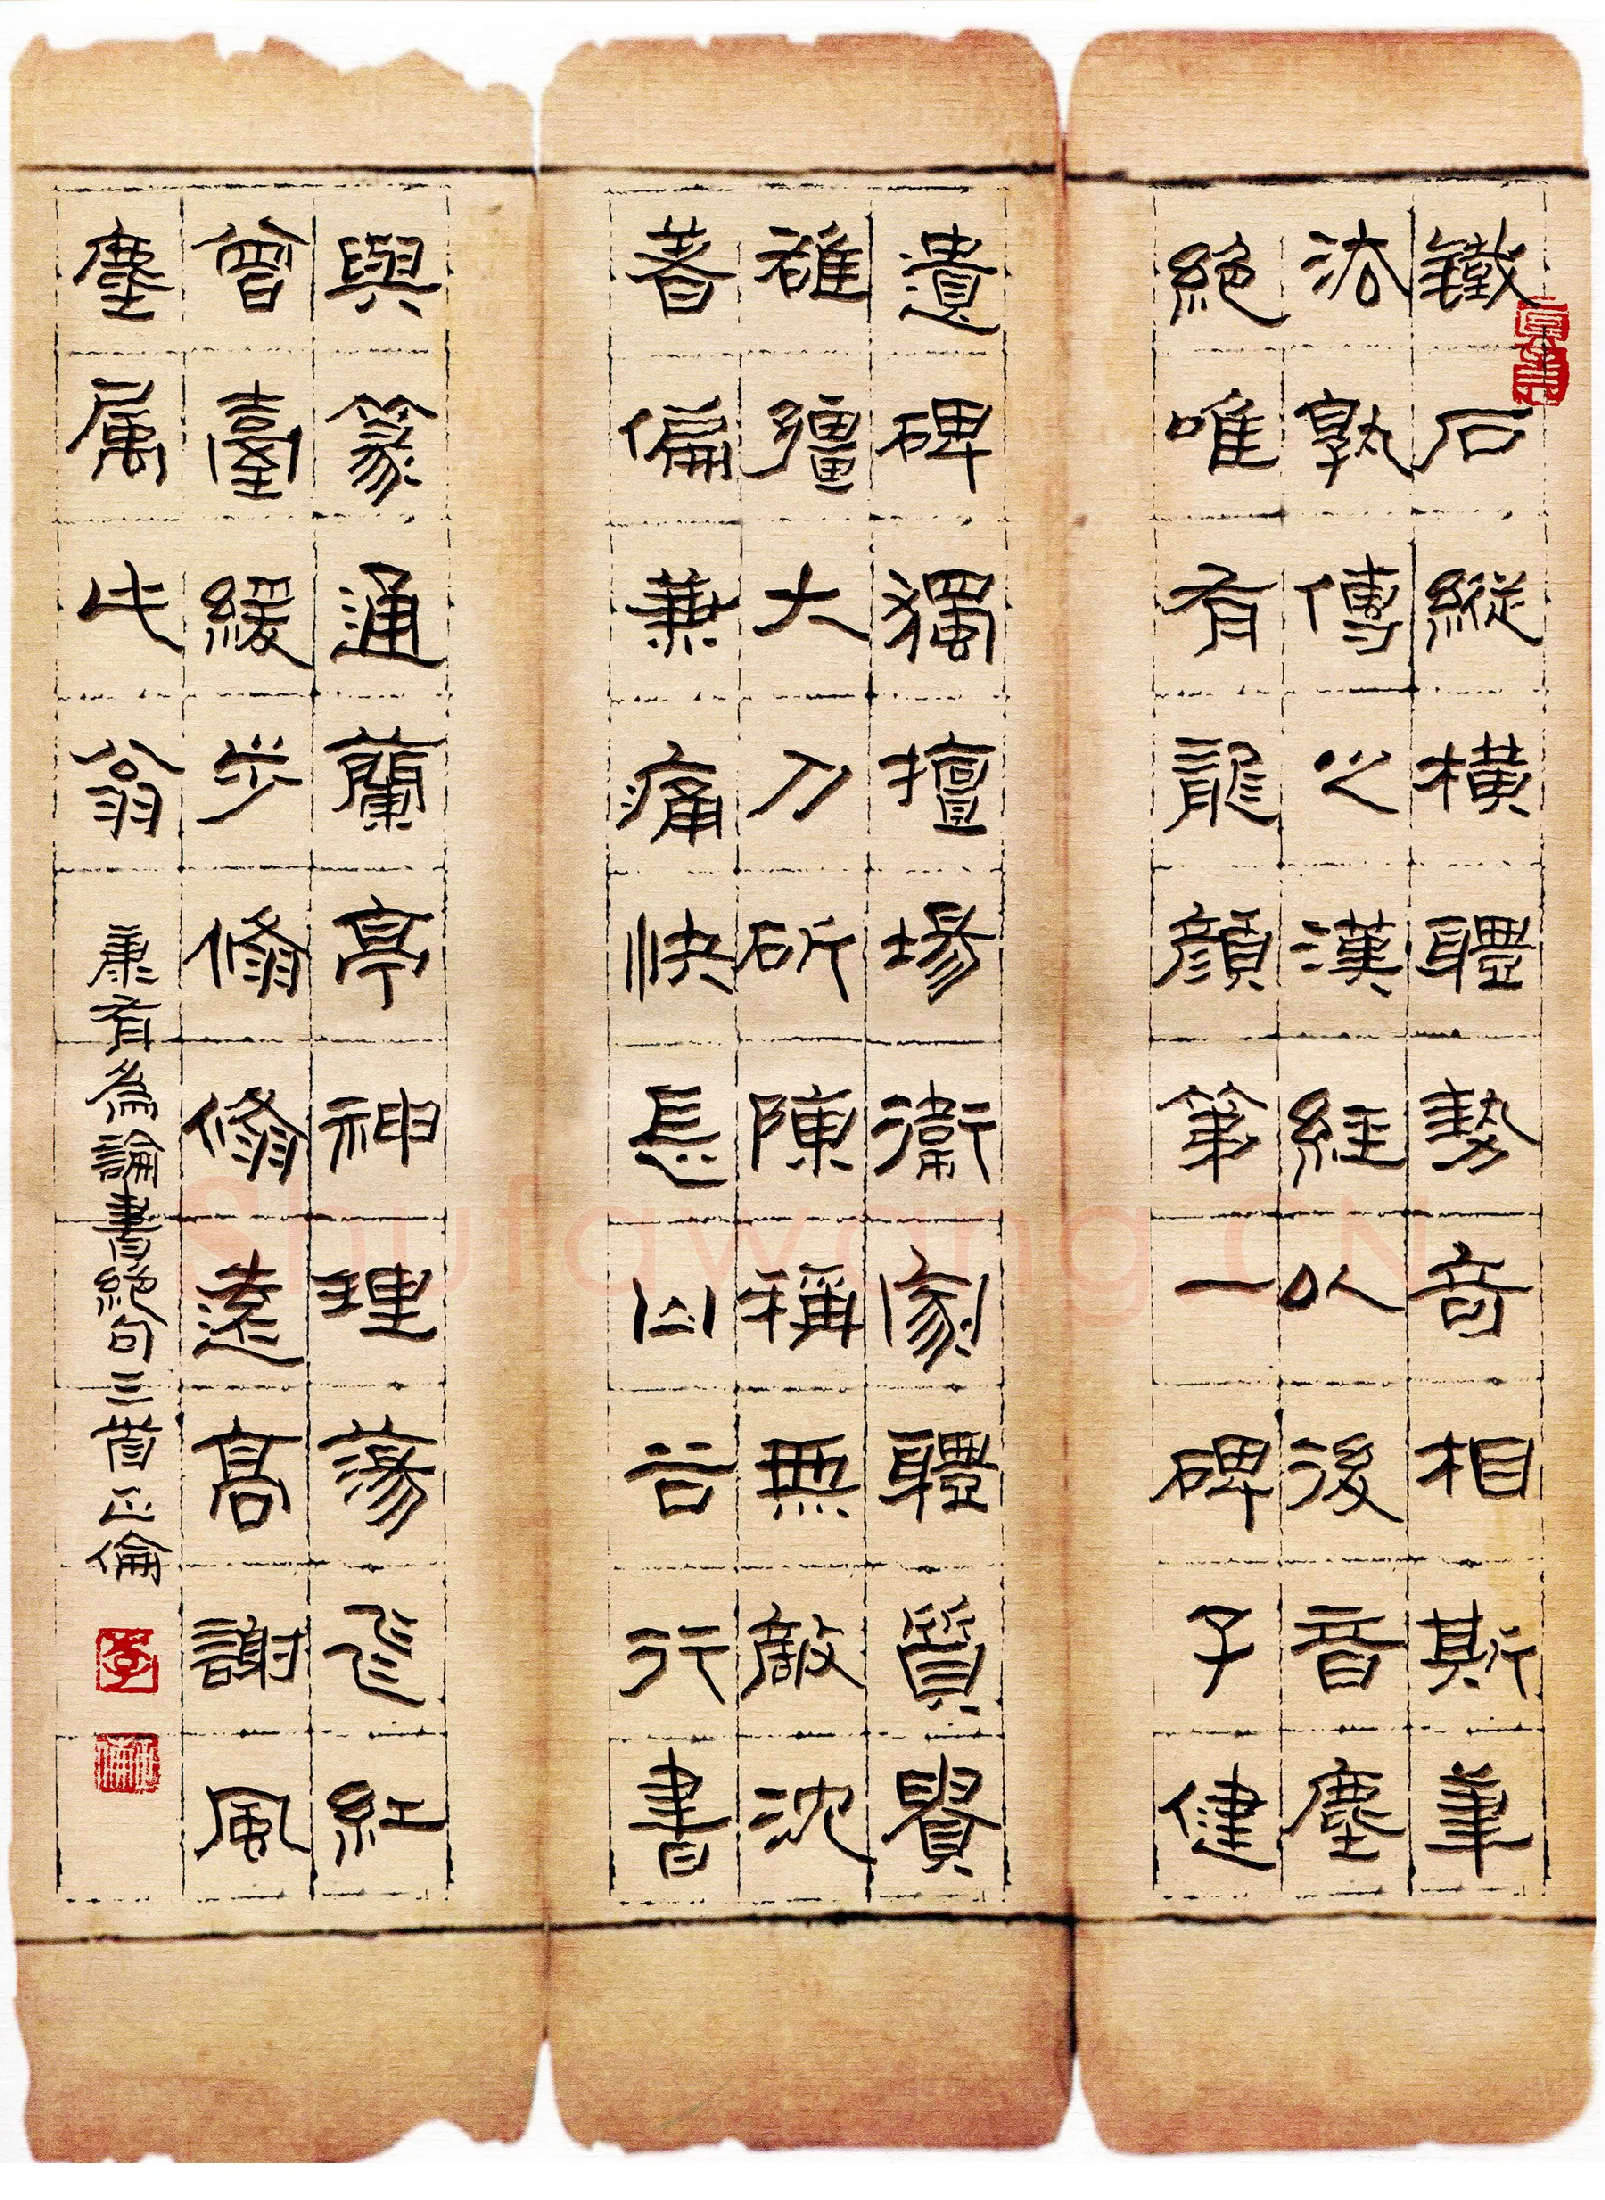 鐵石縱橫體勢奇相斯筆
法孰傳之漢經以後音塵
絕唯有龍顏第一碑子健
遺碑獨擅場衛家體質賢
雄彊大刀斫陳稱無敵沈
著偏兼痛快長山谷行書
與篆通蘭亭神理蕩飛紅
曾臺緩步翛翛遠高謝風
塵屬此翁
康有為論書絕句三首正倫
李
Shufawang.CN